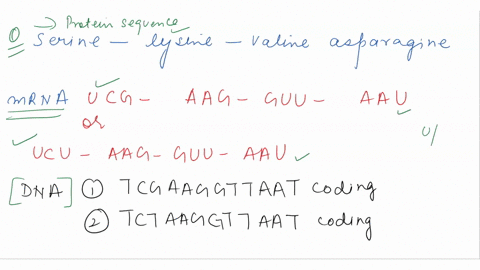 ① → Protein sequence
Serine – lysine – valine asparagine
mRNA UCG – AAG – GUU – AAU
or
UCU – AAG – GUU – AAU
U/
[DNA] ① TCGAAGGTTAAT coding
② TCTAAGGTTAAT coding